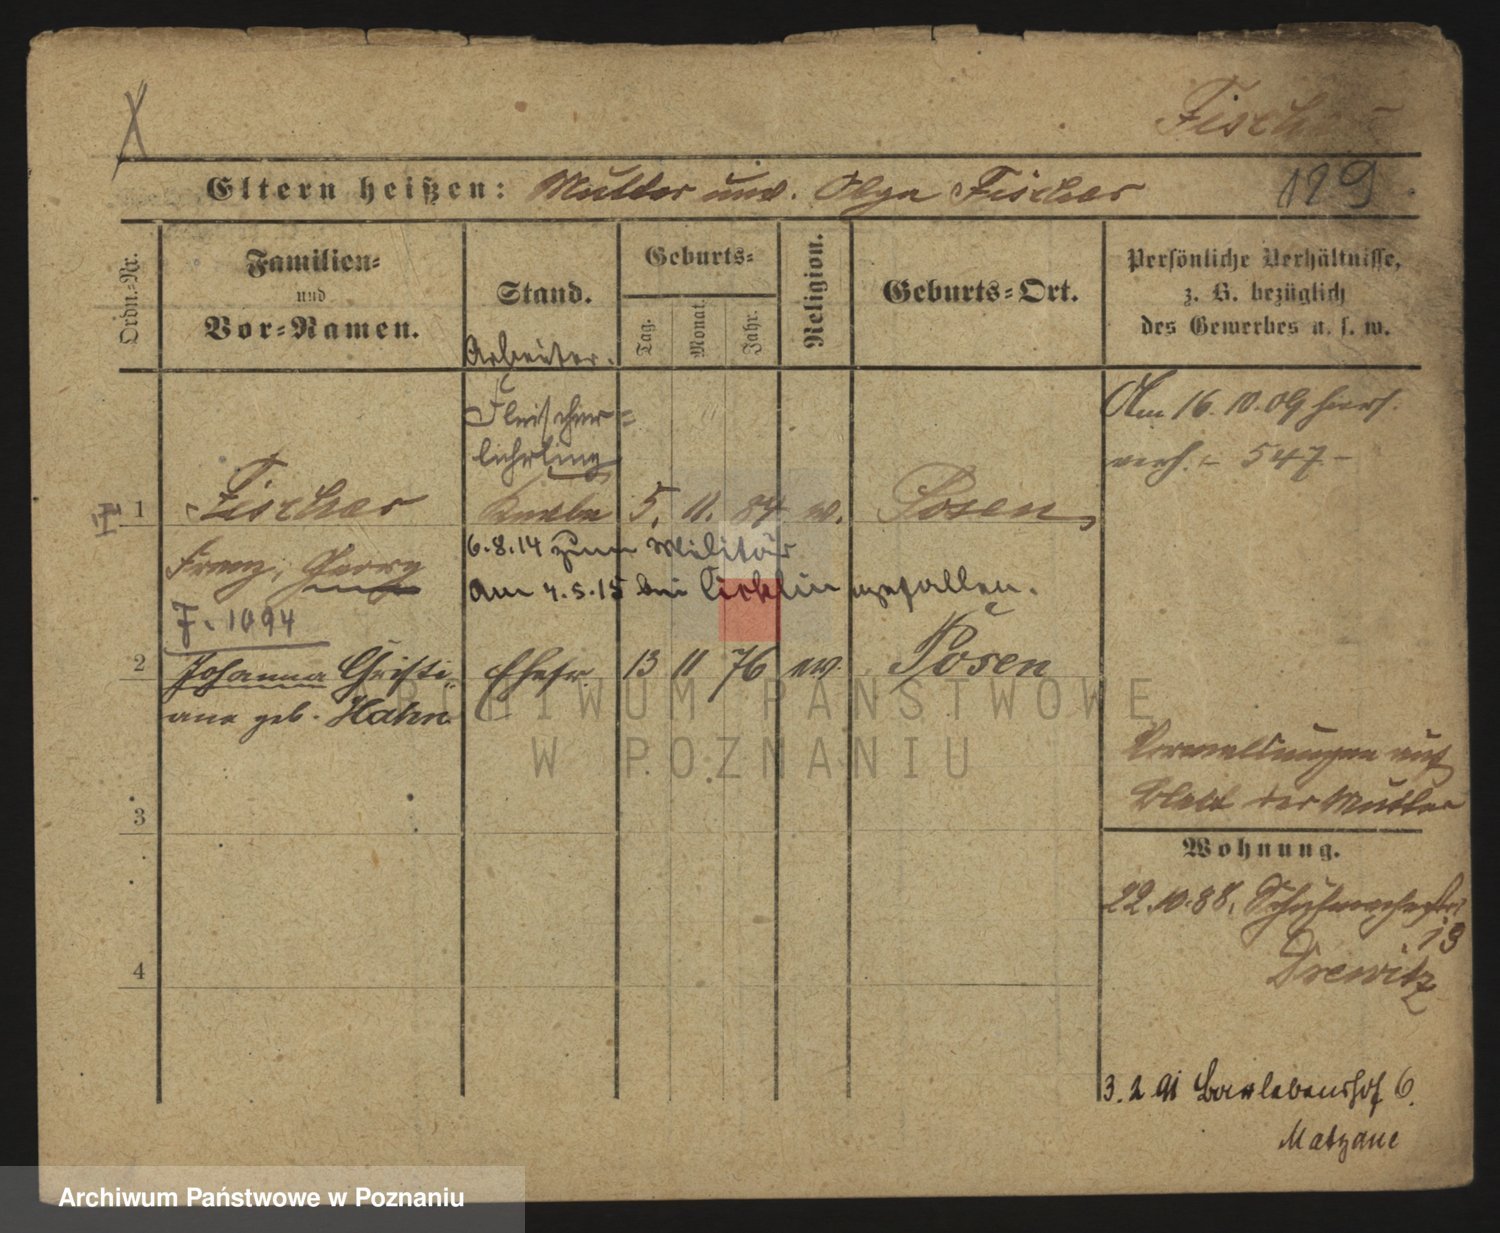 Fischer
Eltern heißen: Mutter unv. Olga Fischer
129
Ordn.-Nr.
Familien-
und
Vor-Namen.
Stand.
Geburts-
Tag.
Monat.
Jahr.
Religion.
Geburts-Ort.
Persönliche Verhältnisse,
z. B. bezüglich
des Gewerbes u. s. w.
Arbeiter.
Fleischer-
lehrling
Am 16.10.09 hiers.
verh. - 547 -
1 Fischer Knabe 5. 11. 84 ev. Posen
Franz, Georg
6.8.14 zum Militär
am 4.5.15 bei gefallen.
F. 1094
2 Johanna Christi- Ehefr. 13 11 76 ev. Posen
ane geb. Hahn
3
4
Vermerkungen auf
Blatt der Mutter
Wohnung.
22.10.88, Schuhmacherstr.
13
Drewitz
3.2.91 Barlebenshof 6.
Matzane
ARCHIWUM PAŃSTWOWE
W POZNANIU
Archiwum Państwowe w Poznaniu